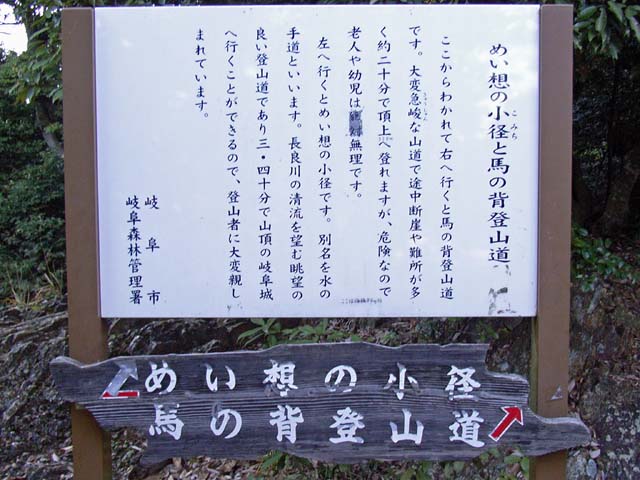 めい想の小径と馬の背登山道
こみち
ここからわかれて右へ行くと馬の背登山道
です。大変急峻な山道で途中断崖や難所が多
きゅうしゅん
く約二十分で頂上へ登れますが、危険なので
老人や幼児は無理です。
左へ行くとめい想の小径です。別名を水の
手道といいます。長良川の清流を望む眺望の
良い登山道であり三・四十分で山頂の岐阜城
へ行くことができるので、登山者に大変親し
まれています。
岐阜市
岐阜森林管理署
めい想の小径
馬の背登山道